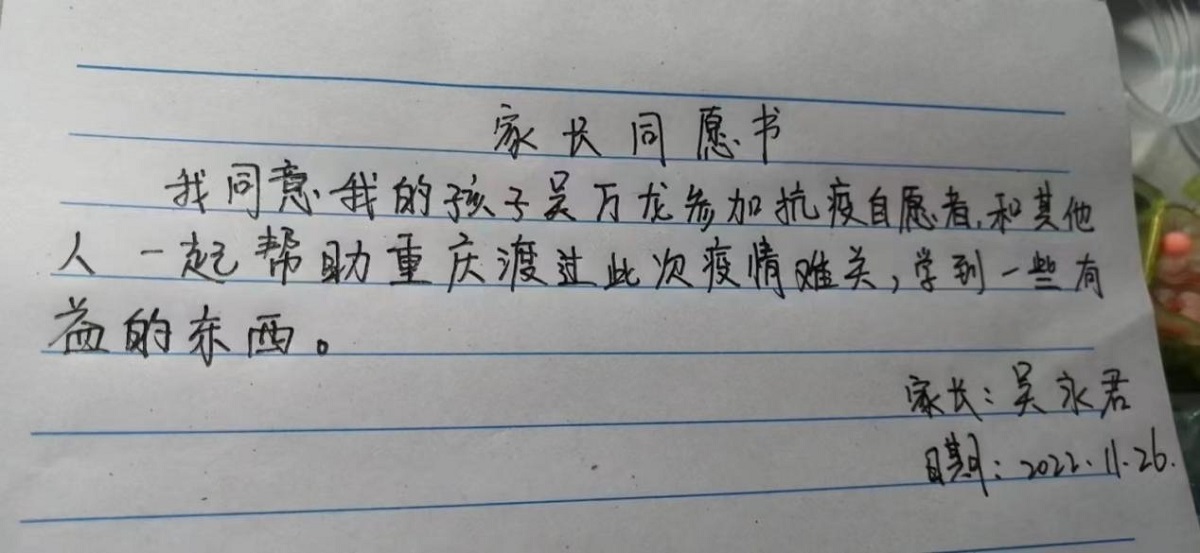 家长同愿书
我同意我的孩子吴万龙参加抗疫自愿者,和其他
人一起帮助重庆渡过此次疫情难关,学到一些有
益的东西。
家长:吴永君
日期:2022.11.26.